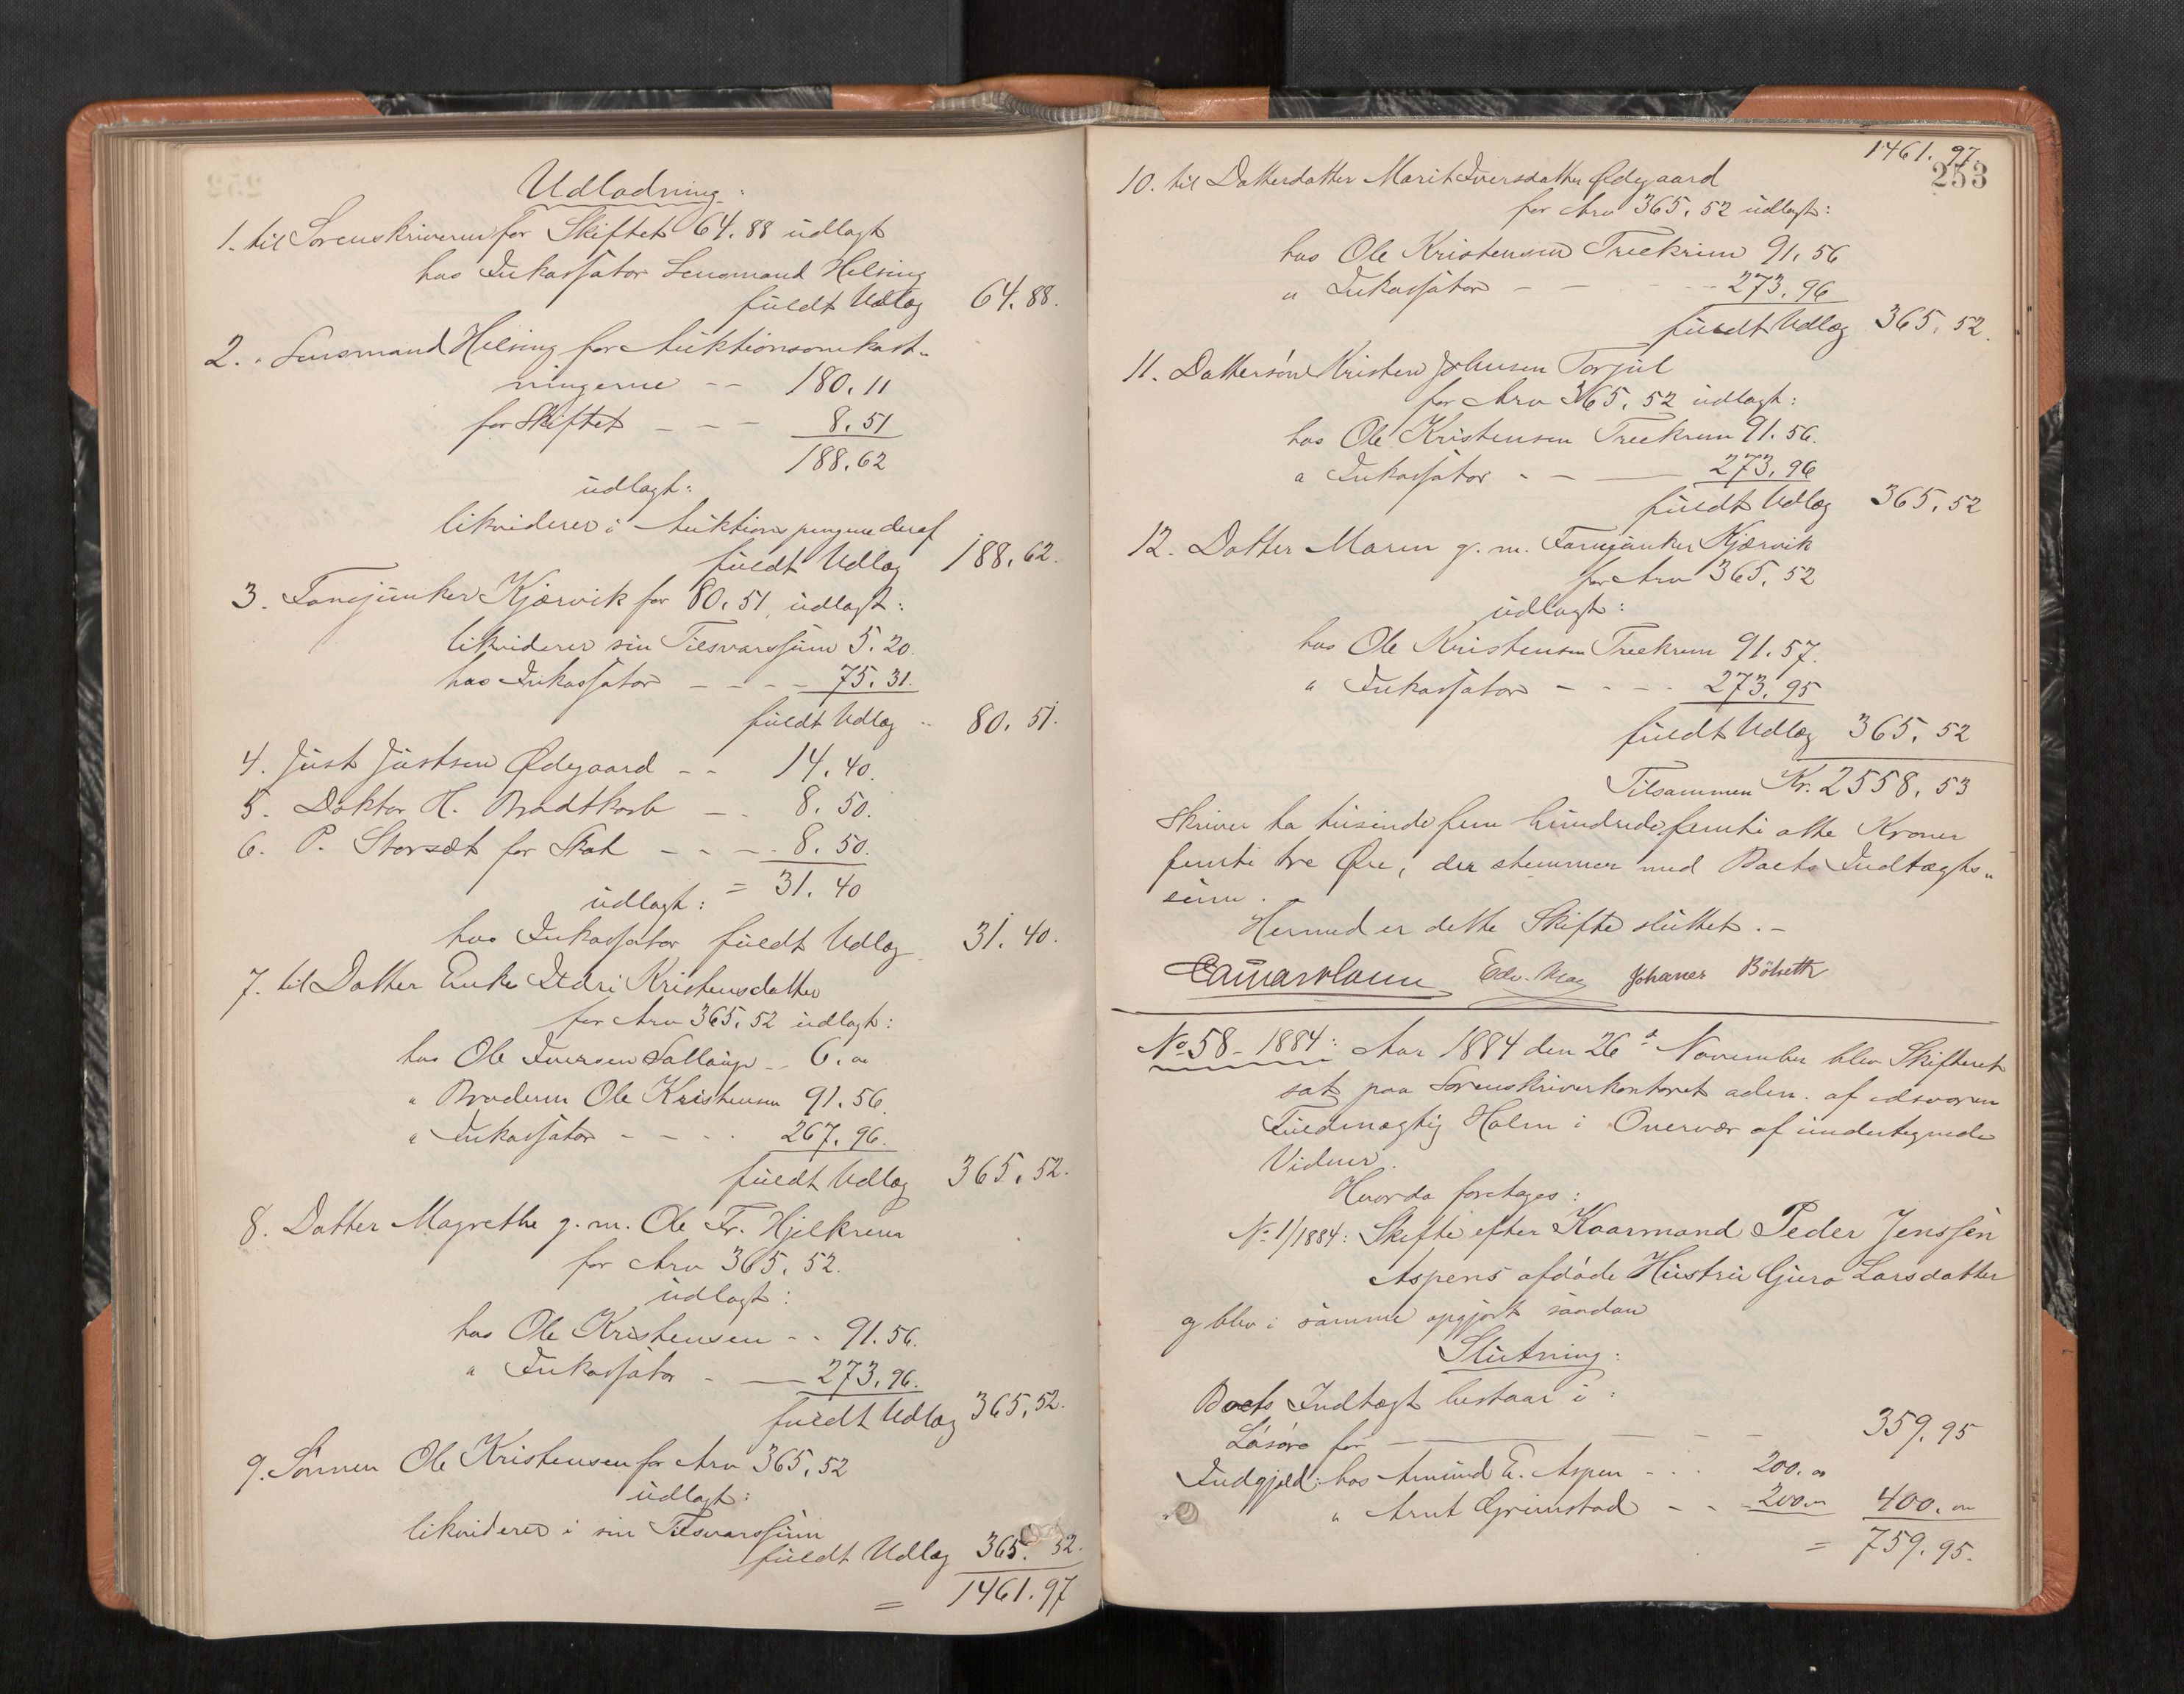 Udlodning:
1. til Sorenskriveren for Skiftet 64.88 udlagt
hos Inkassator Lensmand Helsing
fuldt Udlæg 64.88.
2. " Lensmand Helsing for Auktionsomkost-
ningerne -- 180.11
for Skiftet - - - 8.51
188.62
udlagt:
likviderer i Auktionspengene deraf
fuldt Udlæg 188.62.
3. Fanejunker Kjørvik for 80.51 udlagt:
likviderer sin Tilsvarssum 5.20.
hos Inkassator - - - - 75.31.
fuldt Udlæg .. 80.51.
4. Just Justsen Ødegaard - - 14.40.
5. Doktor H. Bradtkorb - . 8.50.
6. P. Storsæt for Skat - - - . 8.50.
= 31.40
udlagt:
hos Inkassator fuldt Udlæg 31.40.
7. til Datter Enke Sidri Kristensdatter
for Arv 365.52 udlagt:
hos Ole Iversen Sallaup - - 6.00
" Broderen Ole Kristensen 91.56.
" Inkassator - - - . 267.96.
fuldt Udlæg 365.52.
8. Datter Magrethe g.m. Ole Fr. Hjelkrem
for Arv 365.52.
udlagt:
hos Ole Kristensen - . 91.56.
" Inkassator - — 273.96.
fuldt Udlæg 365.52.
9. Sønnen Ole Kristensen for Arv 365.52
udlagt:
likviderer i sin Tilsvarssum
fuldt Udlæg 365.52.
= 1461.97
1461.97.
253
10. til Datterdatter Marit Iversdatter Ødegaard
for Arv 365.52 udlagt:
hos Ole Kristensen Treekrem 91.56
" Inkassator - - - - 273.96
fuldt Udlæg 365.52.
11. Dattersøn Kristen Johnsen Torjul
for Arv 365.52 udlagt:
hos Ole Kristensen Treekrem 91.56.
" Inkassator - - — 273.96
fuldt Udlæg 365.52
12. Datter Maren g.m. Fanejunker Kjørvik
for Arv 365.52
udlagt:
hos Ole Kristensen Treekrem 91.57.
" Inkassator - - - - 273.95
fuldt Udlæg 365.52
Tilsammen Kr. 2558.53
skriver to tusinde fem hundrede femti otte Kroner
femti tre Øre, der stemmer med Boets Indtægts-
sum.
Hermed er dette Skifte sluttet. -
Edv. Johanes Bølseth
No 58 - 1884: Aar 1884 den 26de November blev Skifteret
sat paa Sorenskriverkontoret adm. af edsvoren
Fuldmægtig Holm i Overvær af undertegnede
Vidner.
Hvorda foretoges:
No 1/1884: Skifte efter Kaarmand Peder Jenssen
Aspens afdøde Hustru Guro Larsdatter
og blev i samme opgjort saadan
Slutning:
Boets Indtægt bestaar i:
Løsøre for - - - 359.95
Indgjeld: hos Amund E. Aspen - - . 200.00
" Arnt Grimstad - - 200.00 400.00
= 759.95.